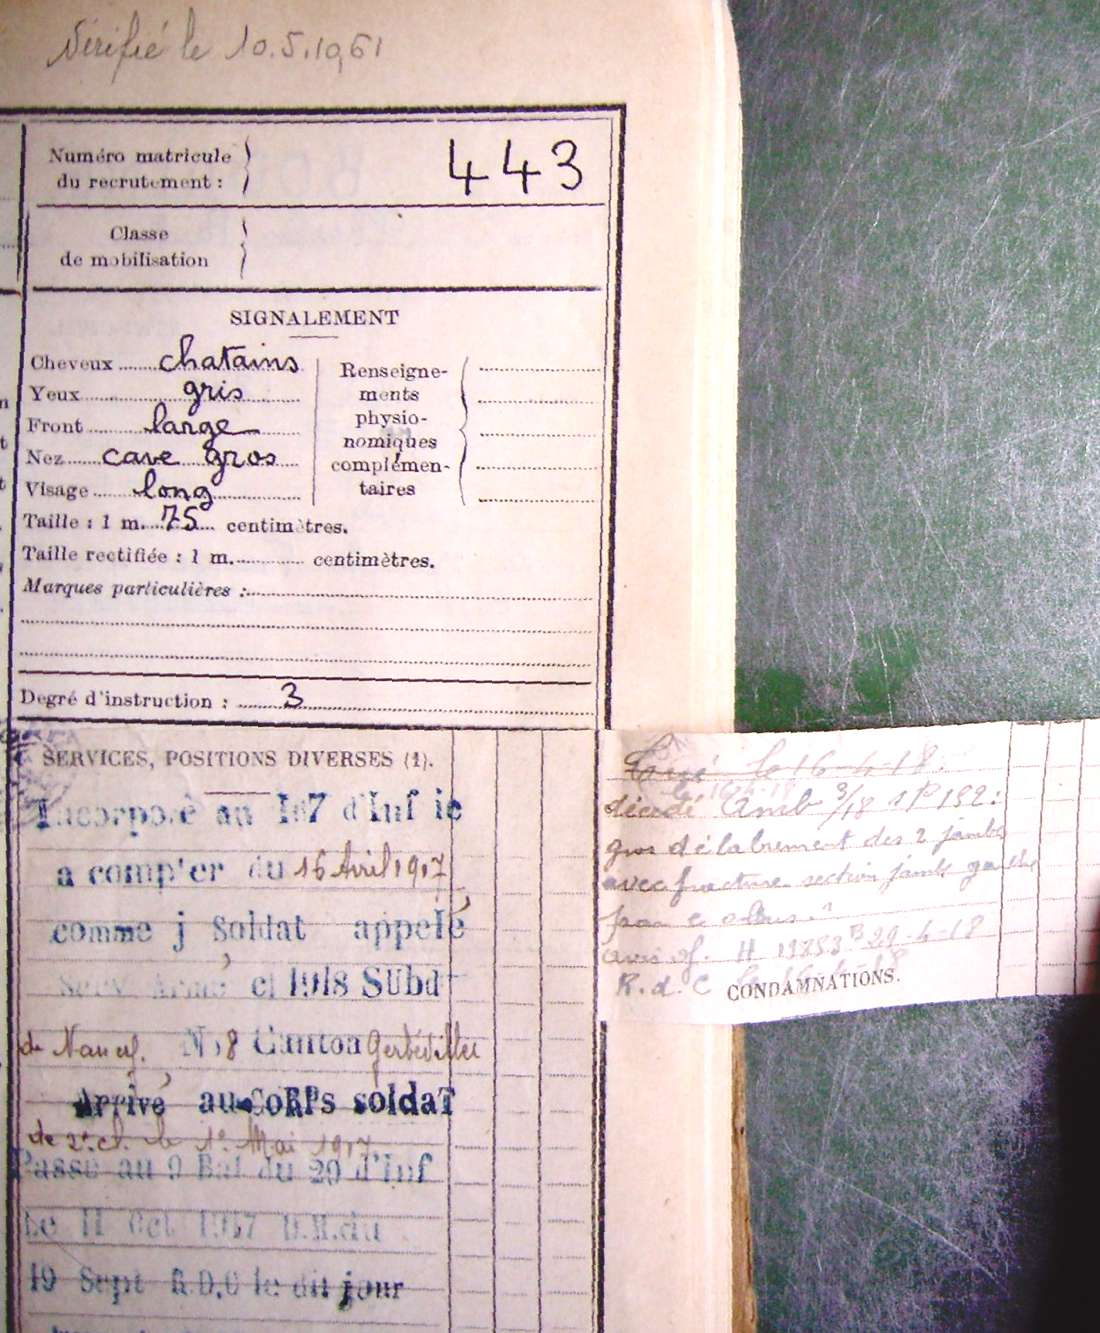 Vérifié le 10.5.1961
Numéro matricule
du recrutement : 443
Classe
de mobilisation
SIGNALEMENT
Cheveux chatains
Yeux gris
Front large
Nez cave gros
Visage long
Renseigne-
ments
physio-
nomiques
complémen-
taires
Taille : 1 m. 75 centimètres.
Taille rectifiée : 1 m. centimètres.
Marques particulières :
Degré d'instruction : 3
SERVICES, POSITIONS DIVERSES (1).
Incorporé au d'Inf ie
a compter du 16 Avril 1917
comme j Soldat appelé
Serv Armé cl 1918 SUbd
de Nancy. N 8 Canton Gerbéviller
Arrivé au CoRPs soldaT
de 2e cl. le 1e Mai 1917
Passé au 9 Bat du 29 d'Inf
Le 11 Oct 1917 D.M.du
19 Sept R.D.C le dit jour
le 16-4-18.
le 16-4-18
décédé Amb 3/18
gros délabrement des 2 jambes
avec fracture section jambe gauche
avis of. H 19853 B 29-4-18
R.d.C
CONDAMNATIONS.